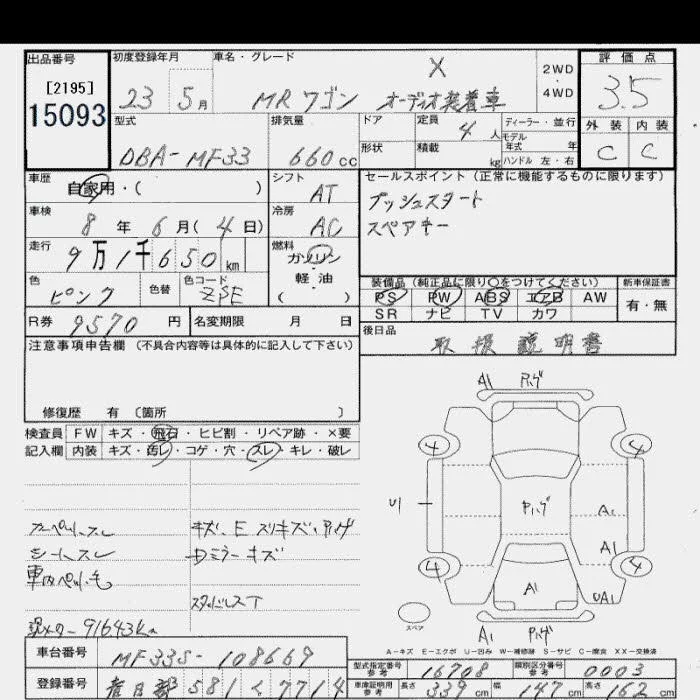 出品番号 初度登録年月 車名・グレード 評価点
[2195]
15093
23 5月 MRワゴン X オーディオ装着車 2WD・4WD 3.5
型式 排気量 ドア 定員 4人 ディーラー・並行 外装 内装
DBA-MF33 660cc 形状 積載 kg モデル年式 年 ハンドル 左・右 C C
車歴 自家用・( ) シフト AT セールスポイント(正常に機能するものに限ります)
車検 8年 6月(4日) 冷房 AC プッシュスタート
スペアキー
走行 9万1千650km 燃料 ガソリン・軽油( )
色 ピンク 色替 色コード ZSE 装備品(純正品に限り○をつけてください) 新車保証書
PS PW ABS エアB AW 有・無
SR ナビ TV カワ
R券 9570円 名変期限 月 日 後日品
取扱説明書
注意事項申告欄 (不具合内容等は具体的に記入して下さい)
修復歴 有 〔箇所 〕
検査員 FW キズ・飛石・ヒビ割・リペア跡・×要
記入欄 内装 キズ・汚レ・コゲ・穴・スレ・キレ・破レ
カーペットスレ キズ、E スリキズ・
シートスレ Dミラーキズ
車内ペット毛
スタッドレスT
メーター91643km
A1
4 4
U1 A1
A1
4 4
A1 UA1
スペア
A1
A-キズ E-エクボ U-凹み W-補修跡 S-サビ C-腐食 XX-交換済
車台番号 MF33S-108669
型式指定番号 参考 16708 類別区分番号 参考 0003
登録番号 春日部 581 く 7714
車庫証明用 参考 長さ 339cm 幅 147cm 高さ 162cm